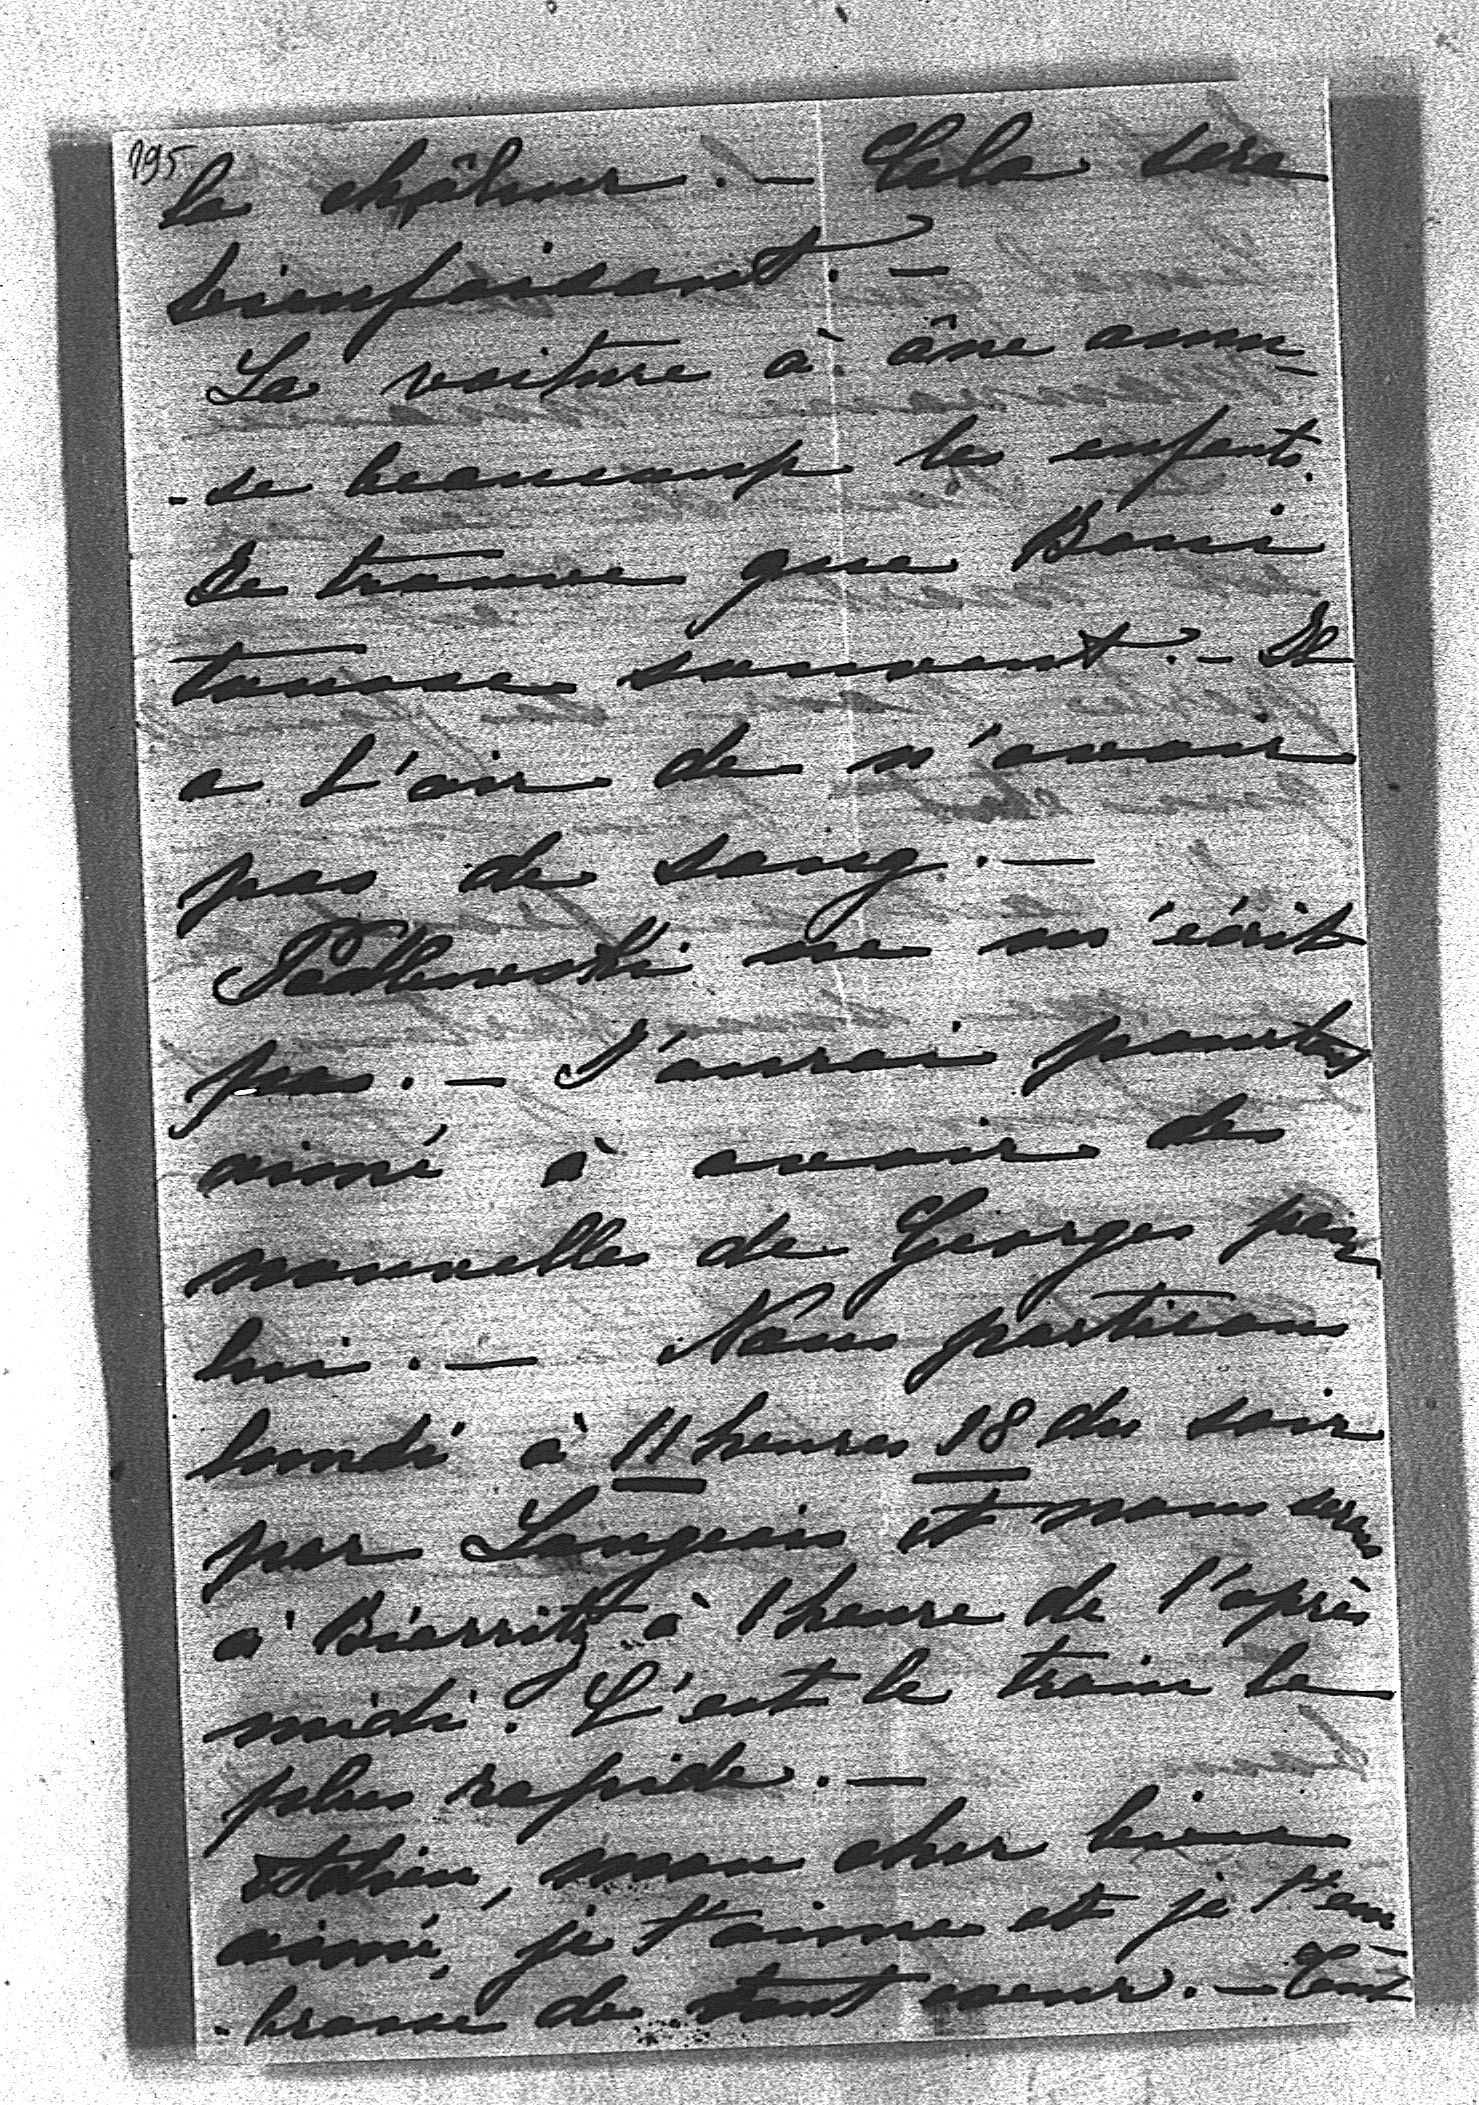 195
la châleur. — Cela sera
bienfaisant. —
La voiture à âne amu-
-se beaucoup les enfants.
Je trouve que Boni
tousse souvent. — Il
a l'air de n'avoir
pas de sang. —
Podlewski ne m'écrit
pas. — J'aurai pourtant
aimé à avoir des
nouvelles de Georges par
lui. — Nous partirons
lundi à 11 heures 18 du soir
par Langeais et nous serons
à Biarritz à 1 heure de l'après
midi. C'est le train le
plus rapide. —
Adieu, mon cher bien
aimé, je t'aime et je t'em
-brasse de tout coeur. — Tout